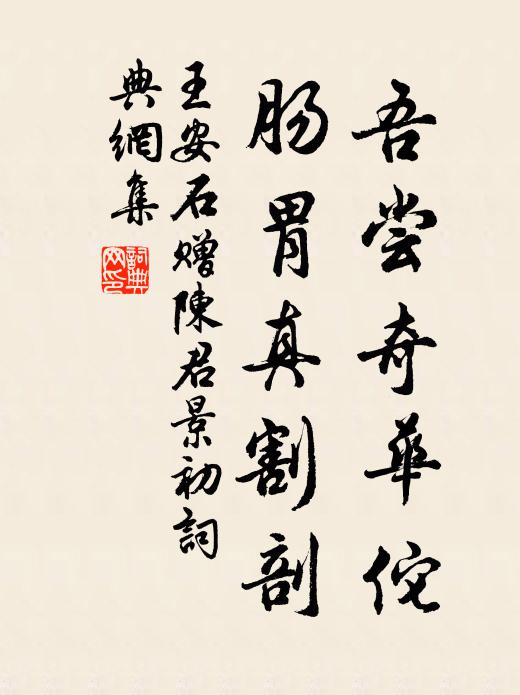 吾嘗奇華佗
肠胃真割剖
王安石赠陳君景初詞
典網集
詞典網印